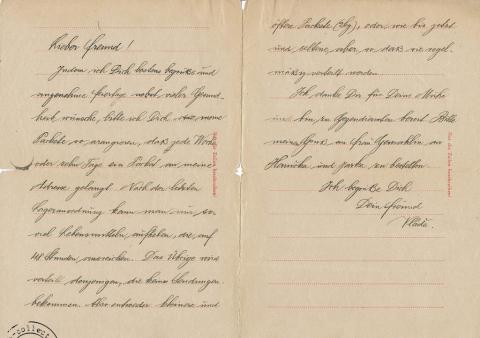 Lieber Freund!
Indem ich Dich bestens begrüße und
angenehme Feiertage nebst vieler Gesund-
heit wünsche, bitte ich Dich meine
Pakete so arrangieren, daß jede Woche
oder zehn Tage ein Paket an meine
Adresse gelangt. Nach der letzten
Lageranordnung kann man nur so
viel Lebensmitteln aufheben, die auf
48 Stunden ausreichen. Das Übrige wird
verteilt denjenigen, die keine Sendungen
bekommen. Also entweder kleinere und
öftere Pakete (2kg), oder wie bis jetzt
und seltene, aber so daß sie regel-
mäßig verteilt werden.
Ich danke Dir für Deine Mühe
und bin zu Gegendiensten bereit. Bitte
meine Gruß an Frau Gemahlin an
und zu bestellen.
Ich begrüße Dich
Dein Freund
Vláďa.
Auf die Zeilen beschreiben!